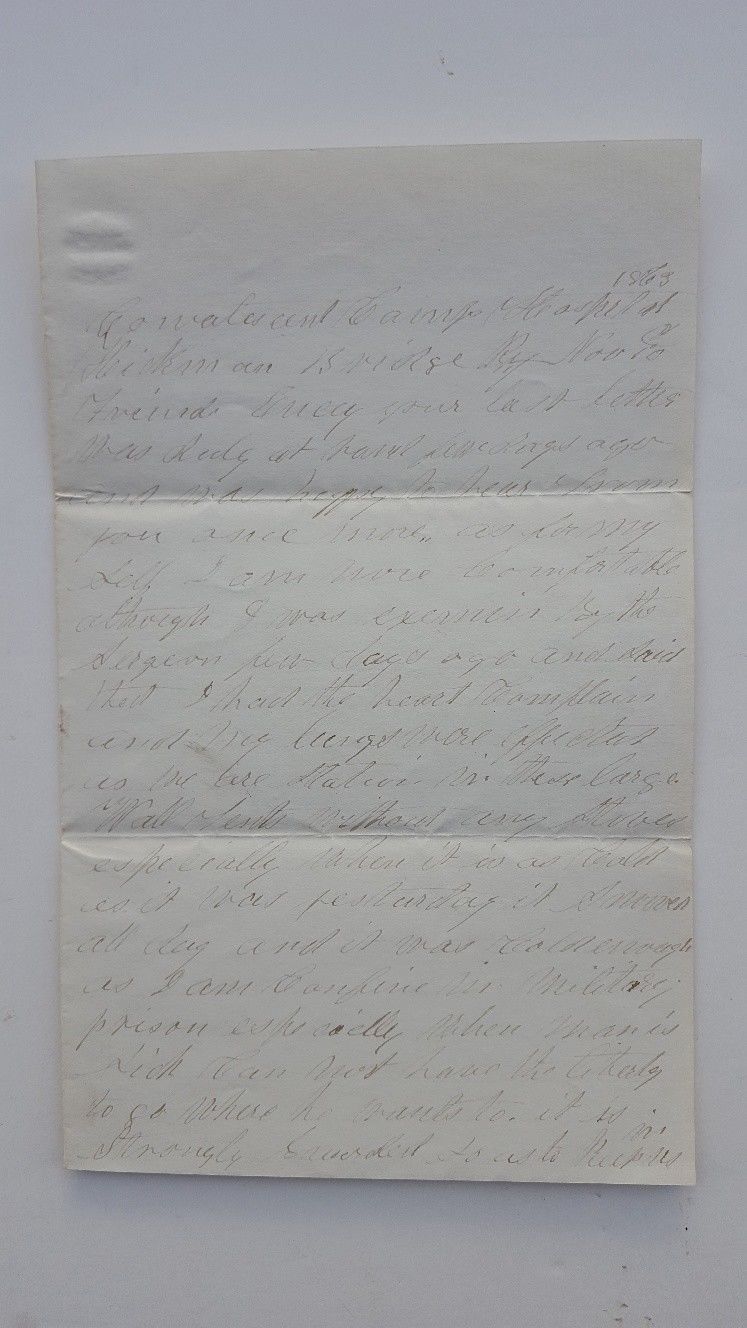 1863
Convalesant Camp Hospital
Hickman Bridge Ky Nov
Friend your last letter
was duly at hand few days ago
and was happy to hear from
you once more, as for my
Self I am more Comfortable
although I was examin by the
Surgeon few days ago and said
that I had the heart Complain
and my lungs were
as we are Station in these large
Wall tents without any Stoves
especially when it is as Cold
as it was yesturday it Snowed
all day and it was Cold enough
as I am Confine in military
prison especially when man is
Sick Can not have the liberty
to go where he wants to. it is
Strongly so as to Keep us
in